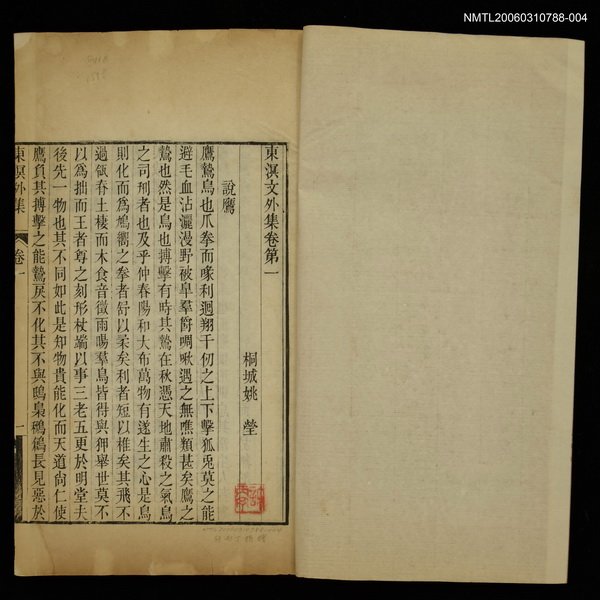 NMTL20060310788-004
東溟文外集卷第一
桐城姚瑩
說鷹
鷹鷙鳥也爪拳而喙利迴翔千仞之上下擊狐兎莫之能
避毛血沾灑漫野被皐羣爵啁啾遇之無噍類甚矣鷹之
鷙也然是鳥也搏擊有時其鷙在秋憑天地肅殺之氣鳥
之司刑者也及乎仲春陽和大布萬物有遂生之心是鳥
則化而爲鳩嚮之拳者舒以柔矣利者短以椎矣其飛不
過瓴脊土棲而木食音徵雨暘羣鳥皆得與狎舉世莫不
以爲拙而王者尊之刻形杖端以事三老五更於明堂夫
後先一物也其不同如此是知物貴能化而天道尚仁使
鷹負其搏擊之能鷙戾不化其不與鴟梟鵂鶹長見惡於
東溟外集
卷一
一